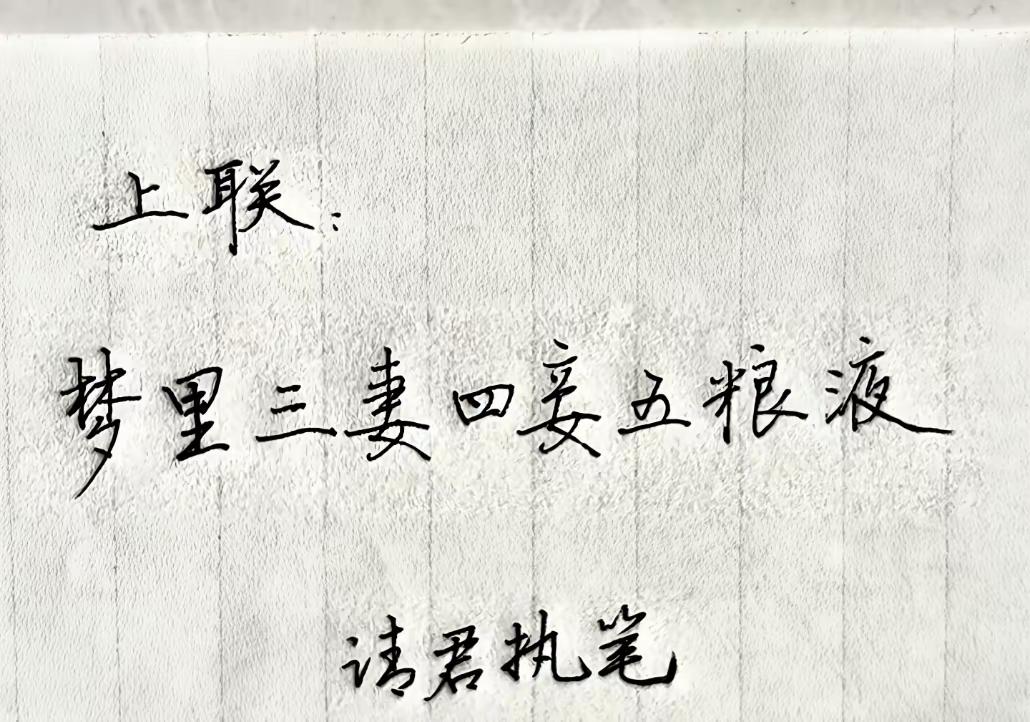 上联:
梦里三妻四妾五粮液
请君执笔